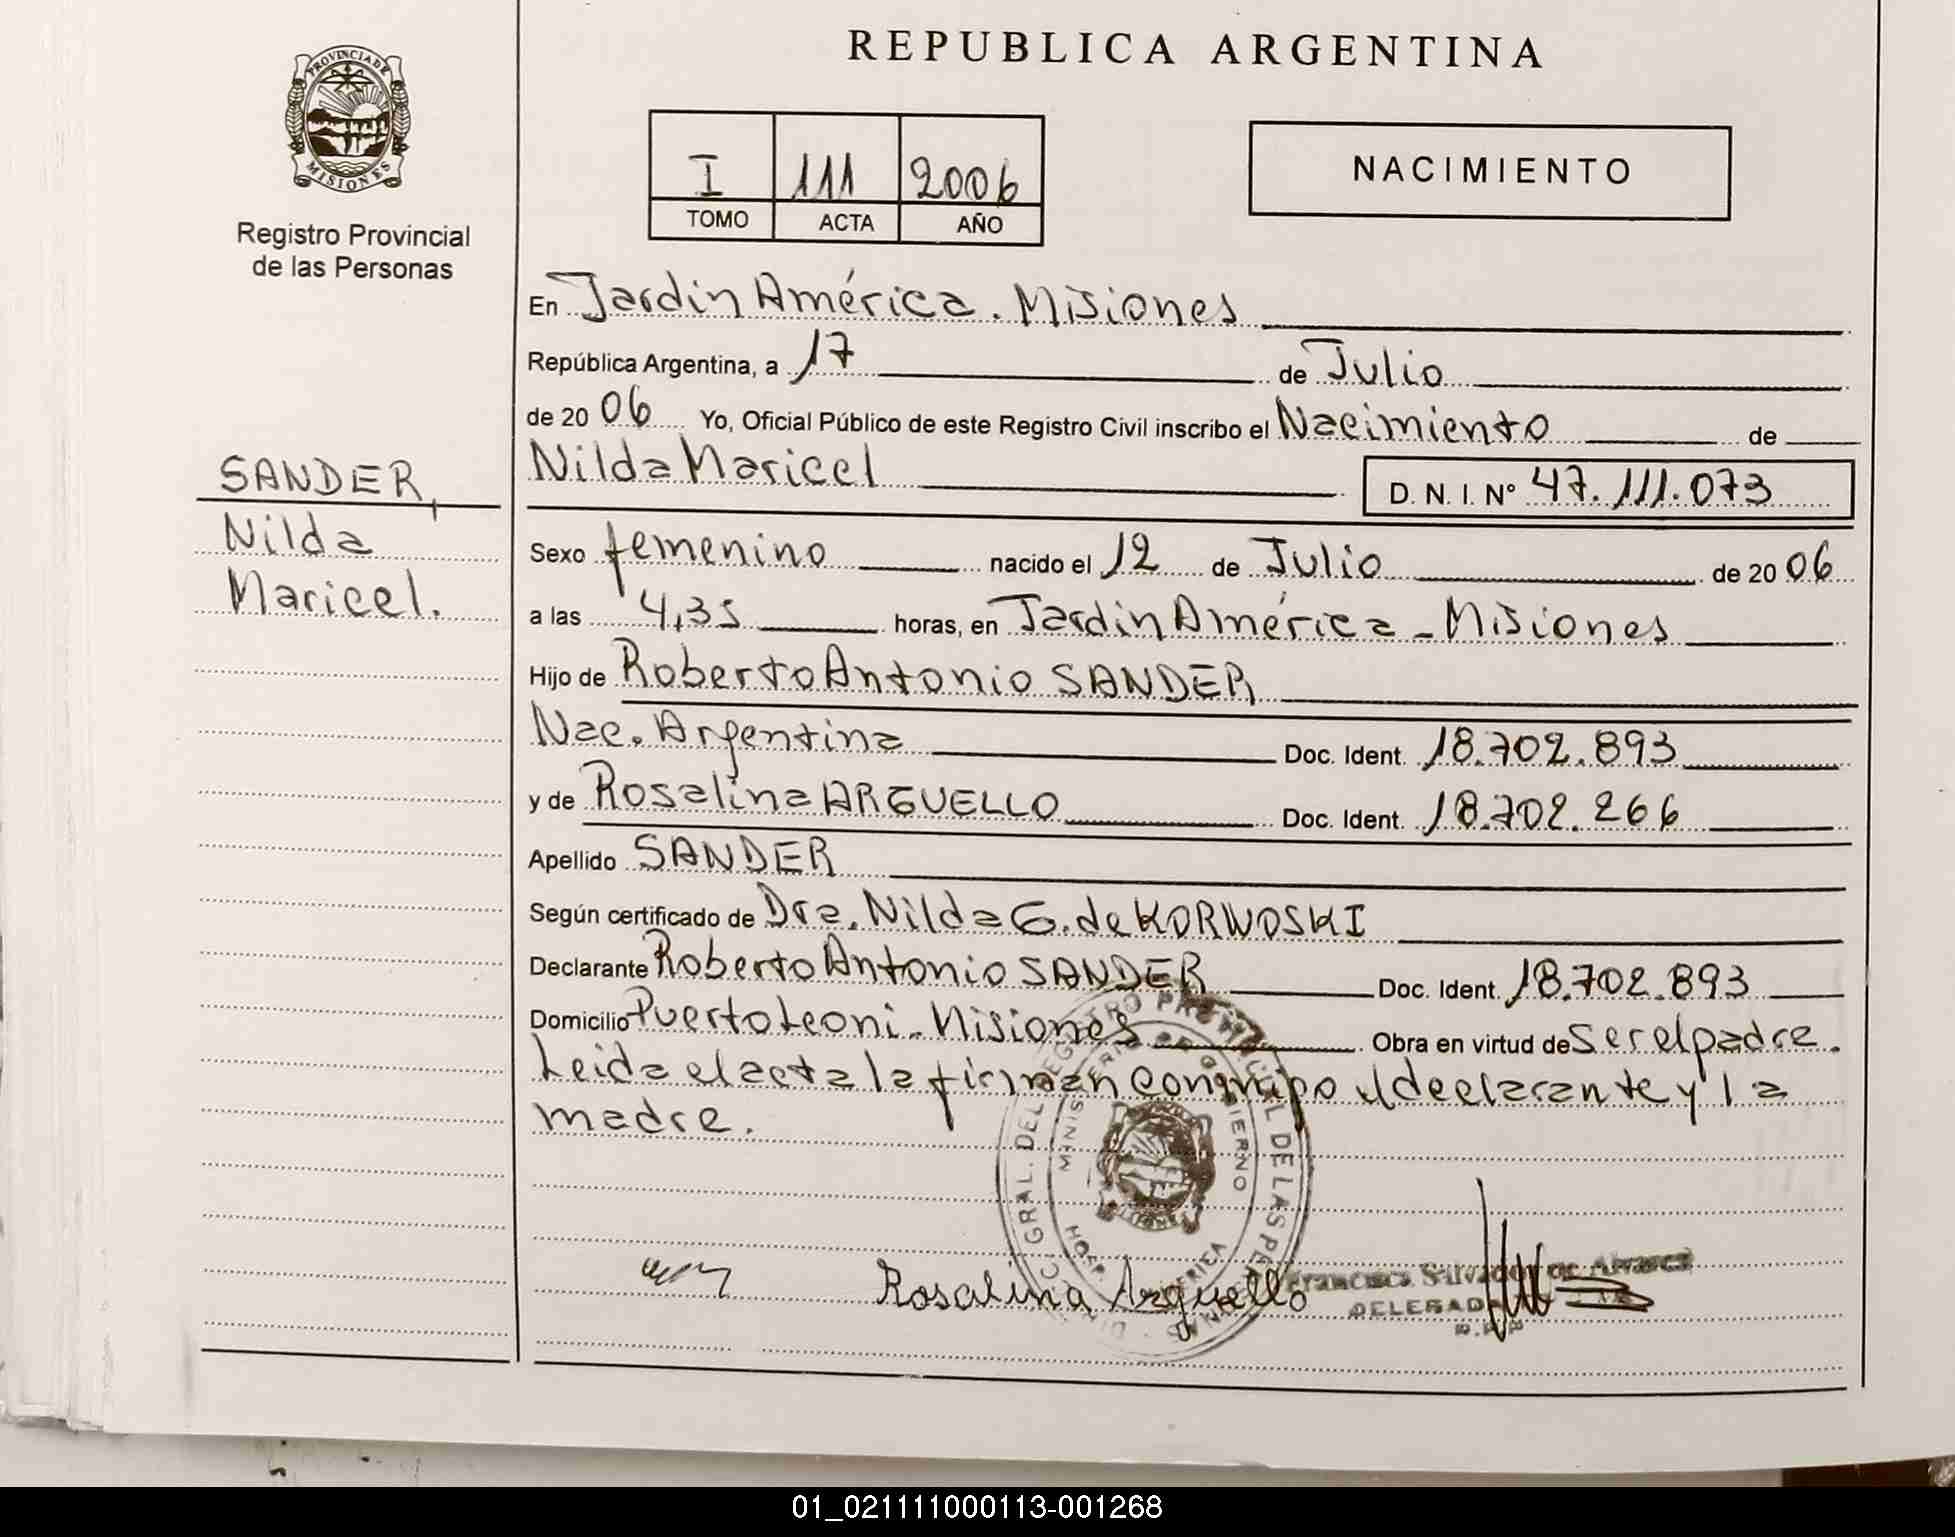 REPUBLICA ARGENTINA
PROVINCIA DE MISIONES
Registro Provincial
de las Personas
I 111 2006
TOMO ACTA AÑO
NACIMIENTO
En Jardín América. Misiones
República Argentina, a 17 de Julio
de 20 06 Yo, Oficial Público de este Registro Civil inscribo el Nacimiento de
Nilda Maricel D. N. I. Nº 47.111.073
SANDER,
Nilda
Maricel.
Sexo femenino nacido el 12 de Julio de 20 06
a las 4,35 horas, en Jardín América - Misiones
Hijo de Roberto Antonio SANDER
Nac. Argentina Doc. Ident. 18.702.893
y de Rosalina ARGUELLO Doc. Ident. 18.702.266
Apellido SANDER
Según certificado de Dra. Nilda G. de KORWOSKI
Declarante Roberto Antonio SANDER Doc. Ident. 18.702.893
Domicilio Puerto Leoni - Misiones Obra en virtud de Ser el padre.
Leida el acta la firman conmigo el declarante y la
madre.
GRAL. DEL REGISTRO PROVINCIAL DE LAS
MINISTERIO DE GOBIERNO
HOSP.
Rosalina Arguello
Francisca Salvador de Alvarez
DELEGADA
01_021111000113-001268